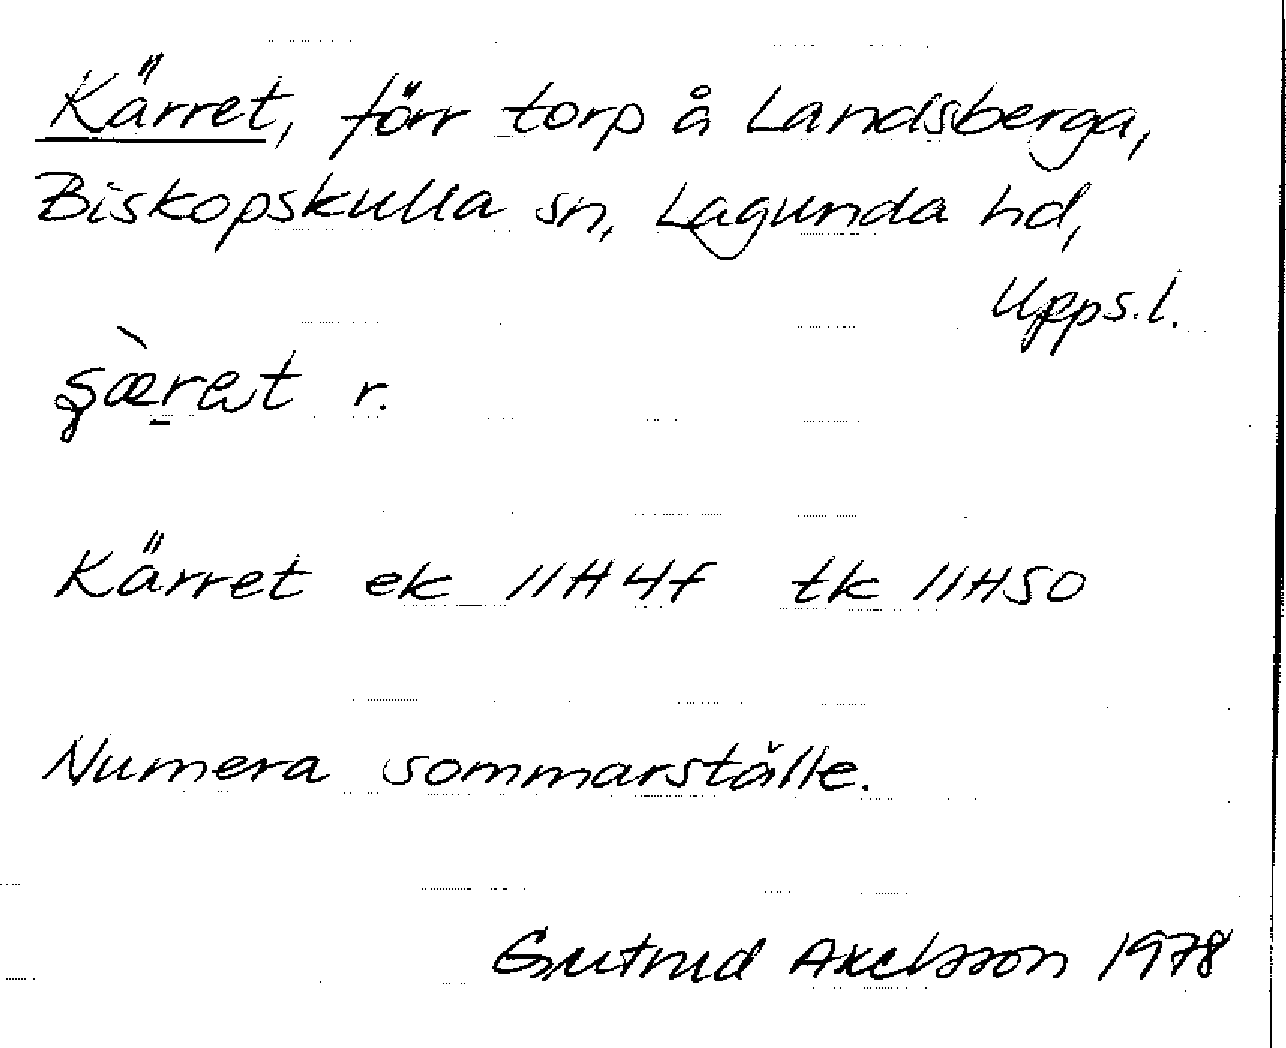 Kärret, förr torp å Landsberga,
Biskopskulla sn, Lagunda hd,
Upps.l.
r.
Kärret ek 11H4f tk 11H50
Numera sommarställe.
Gertrud Axelsson 1978